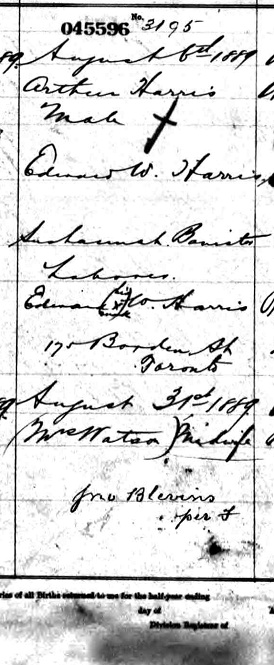 No. 3195
045596
89. August 6th 1889
Arthur Harris
Male
Edward W. Harris,
Sushannah Banister
Labourer.
Edward his x mark W. Harris
175 Borden St
Toronto
89 August 31st 1889
(Mrs Watson) Midwife
Jno Blevins
per F
ries of all Births returned to me for the half-year ending
day of
Division Registrar of